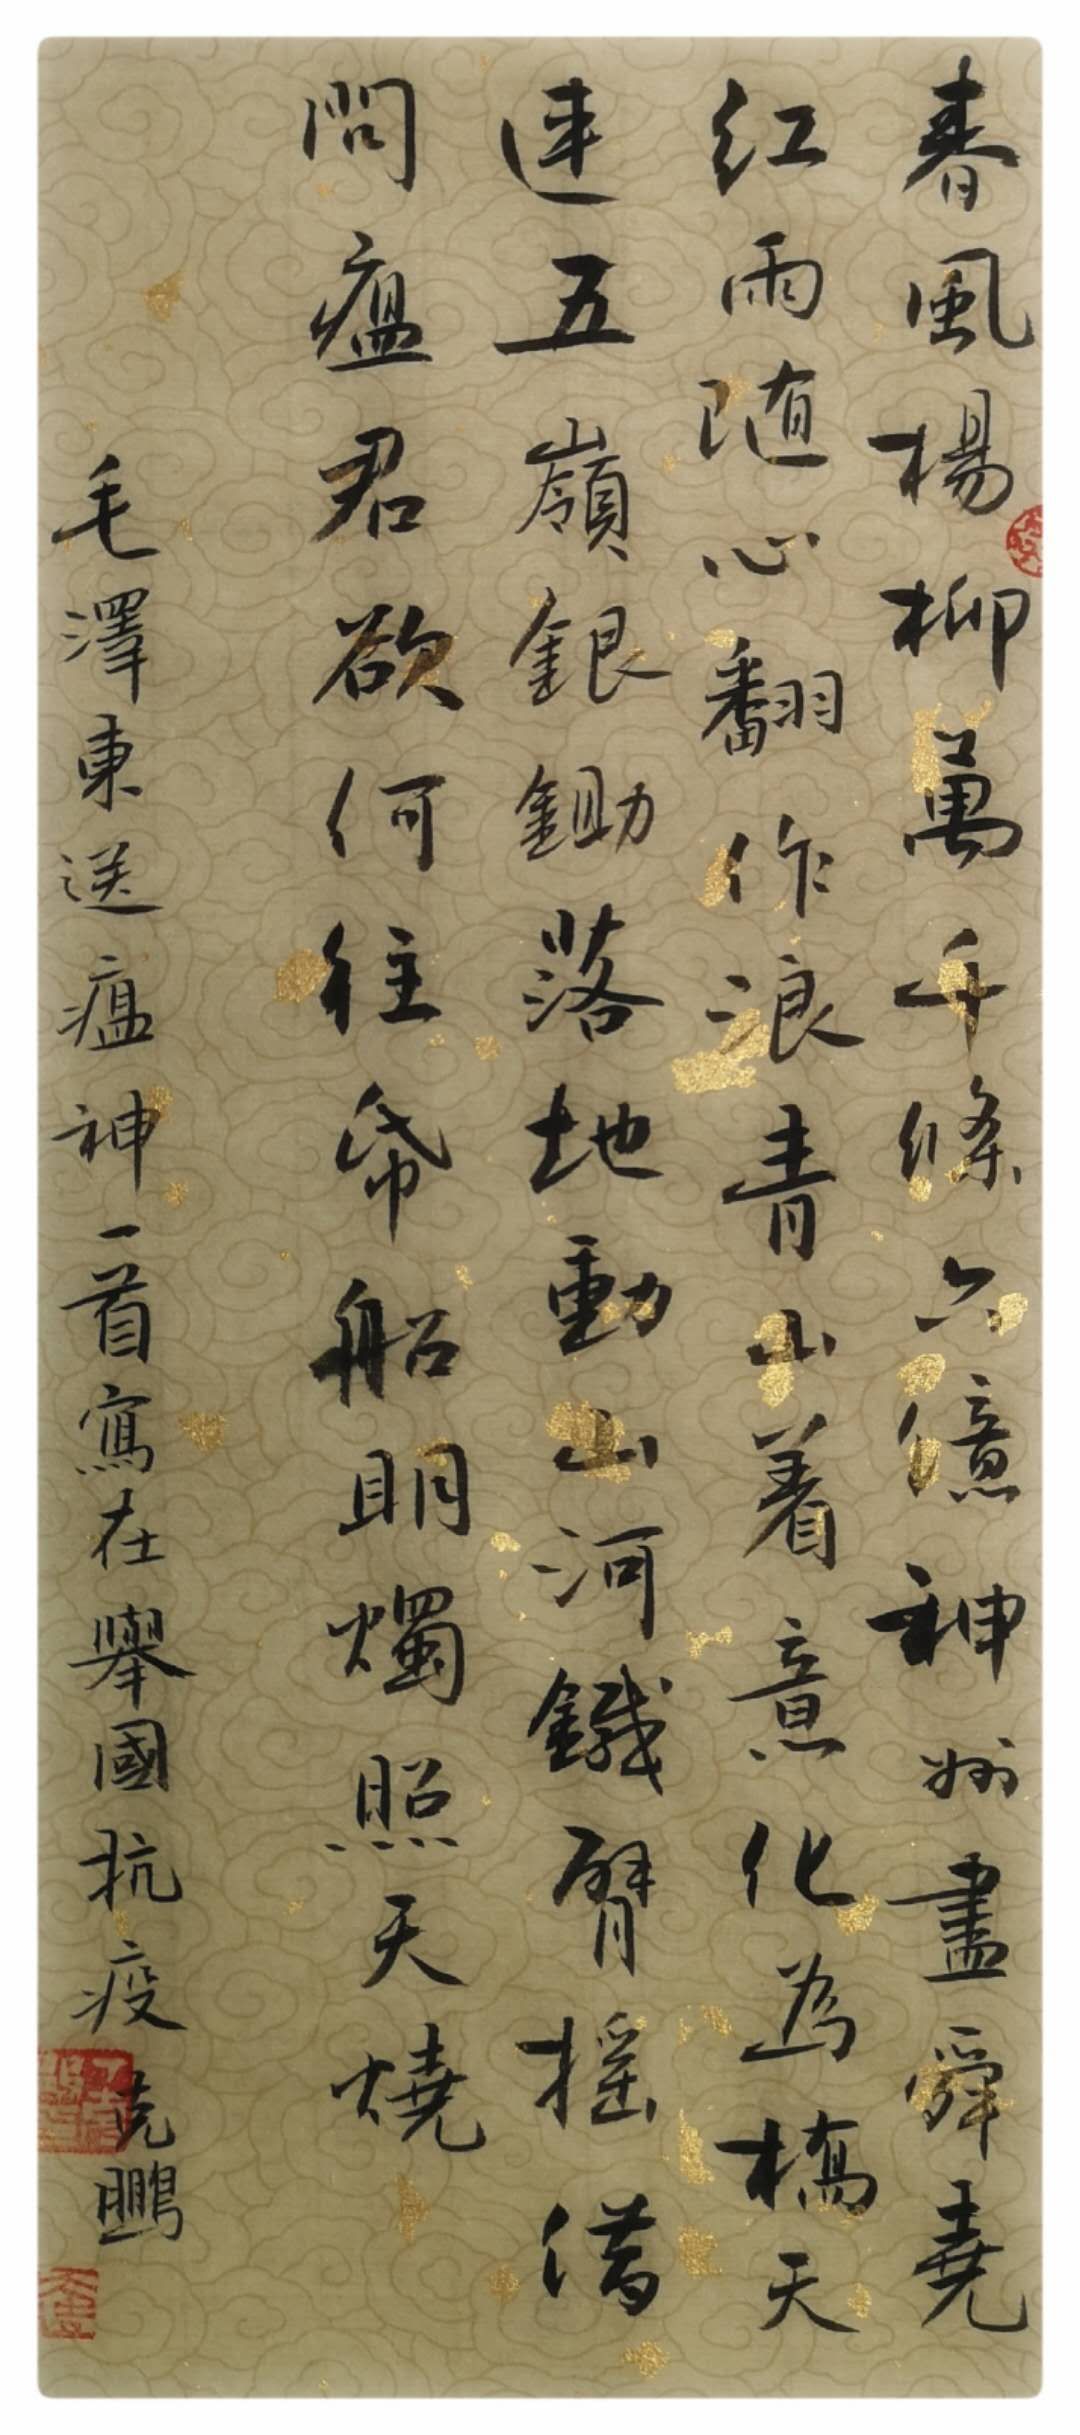 春風楊柳萬千條六億神州盡舜堯
紅雨随心翻作浪青山着意化為橋天
連五嶺銀鋤落地動山河鐵臂摇借
問瘟君欲何往帋船明燭照天燒
毛澤東送瘟神一首寫在舉國抗疫 克鵬